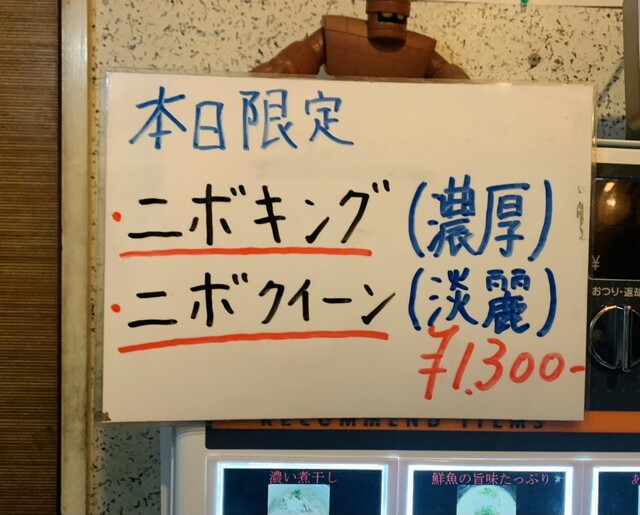 本日限定
・ニボキング(濃厚)
・ニボクイーン(淡麗)
¥1,300-
¥
おつり・返却
RECOMMEND ITEMS
濃い煮干し
鮮魚の旨味たっぷり
あ